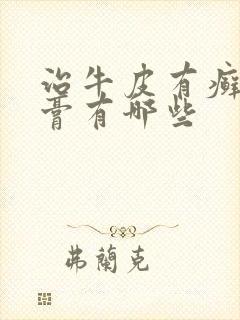 治牛皮有癣
膏有哪些
弗蘭克